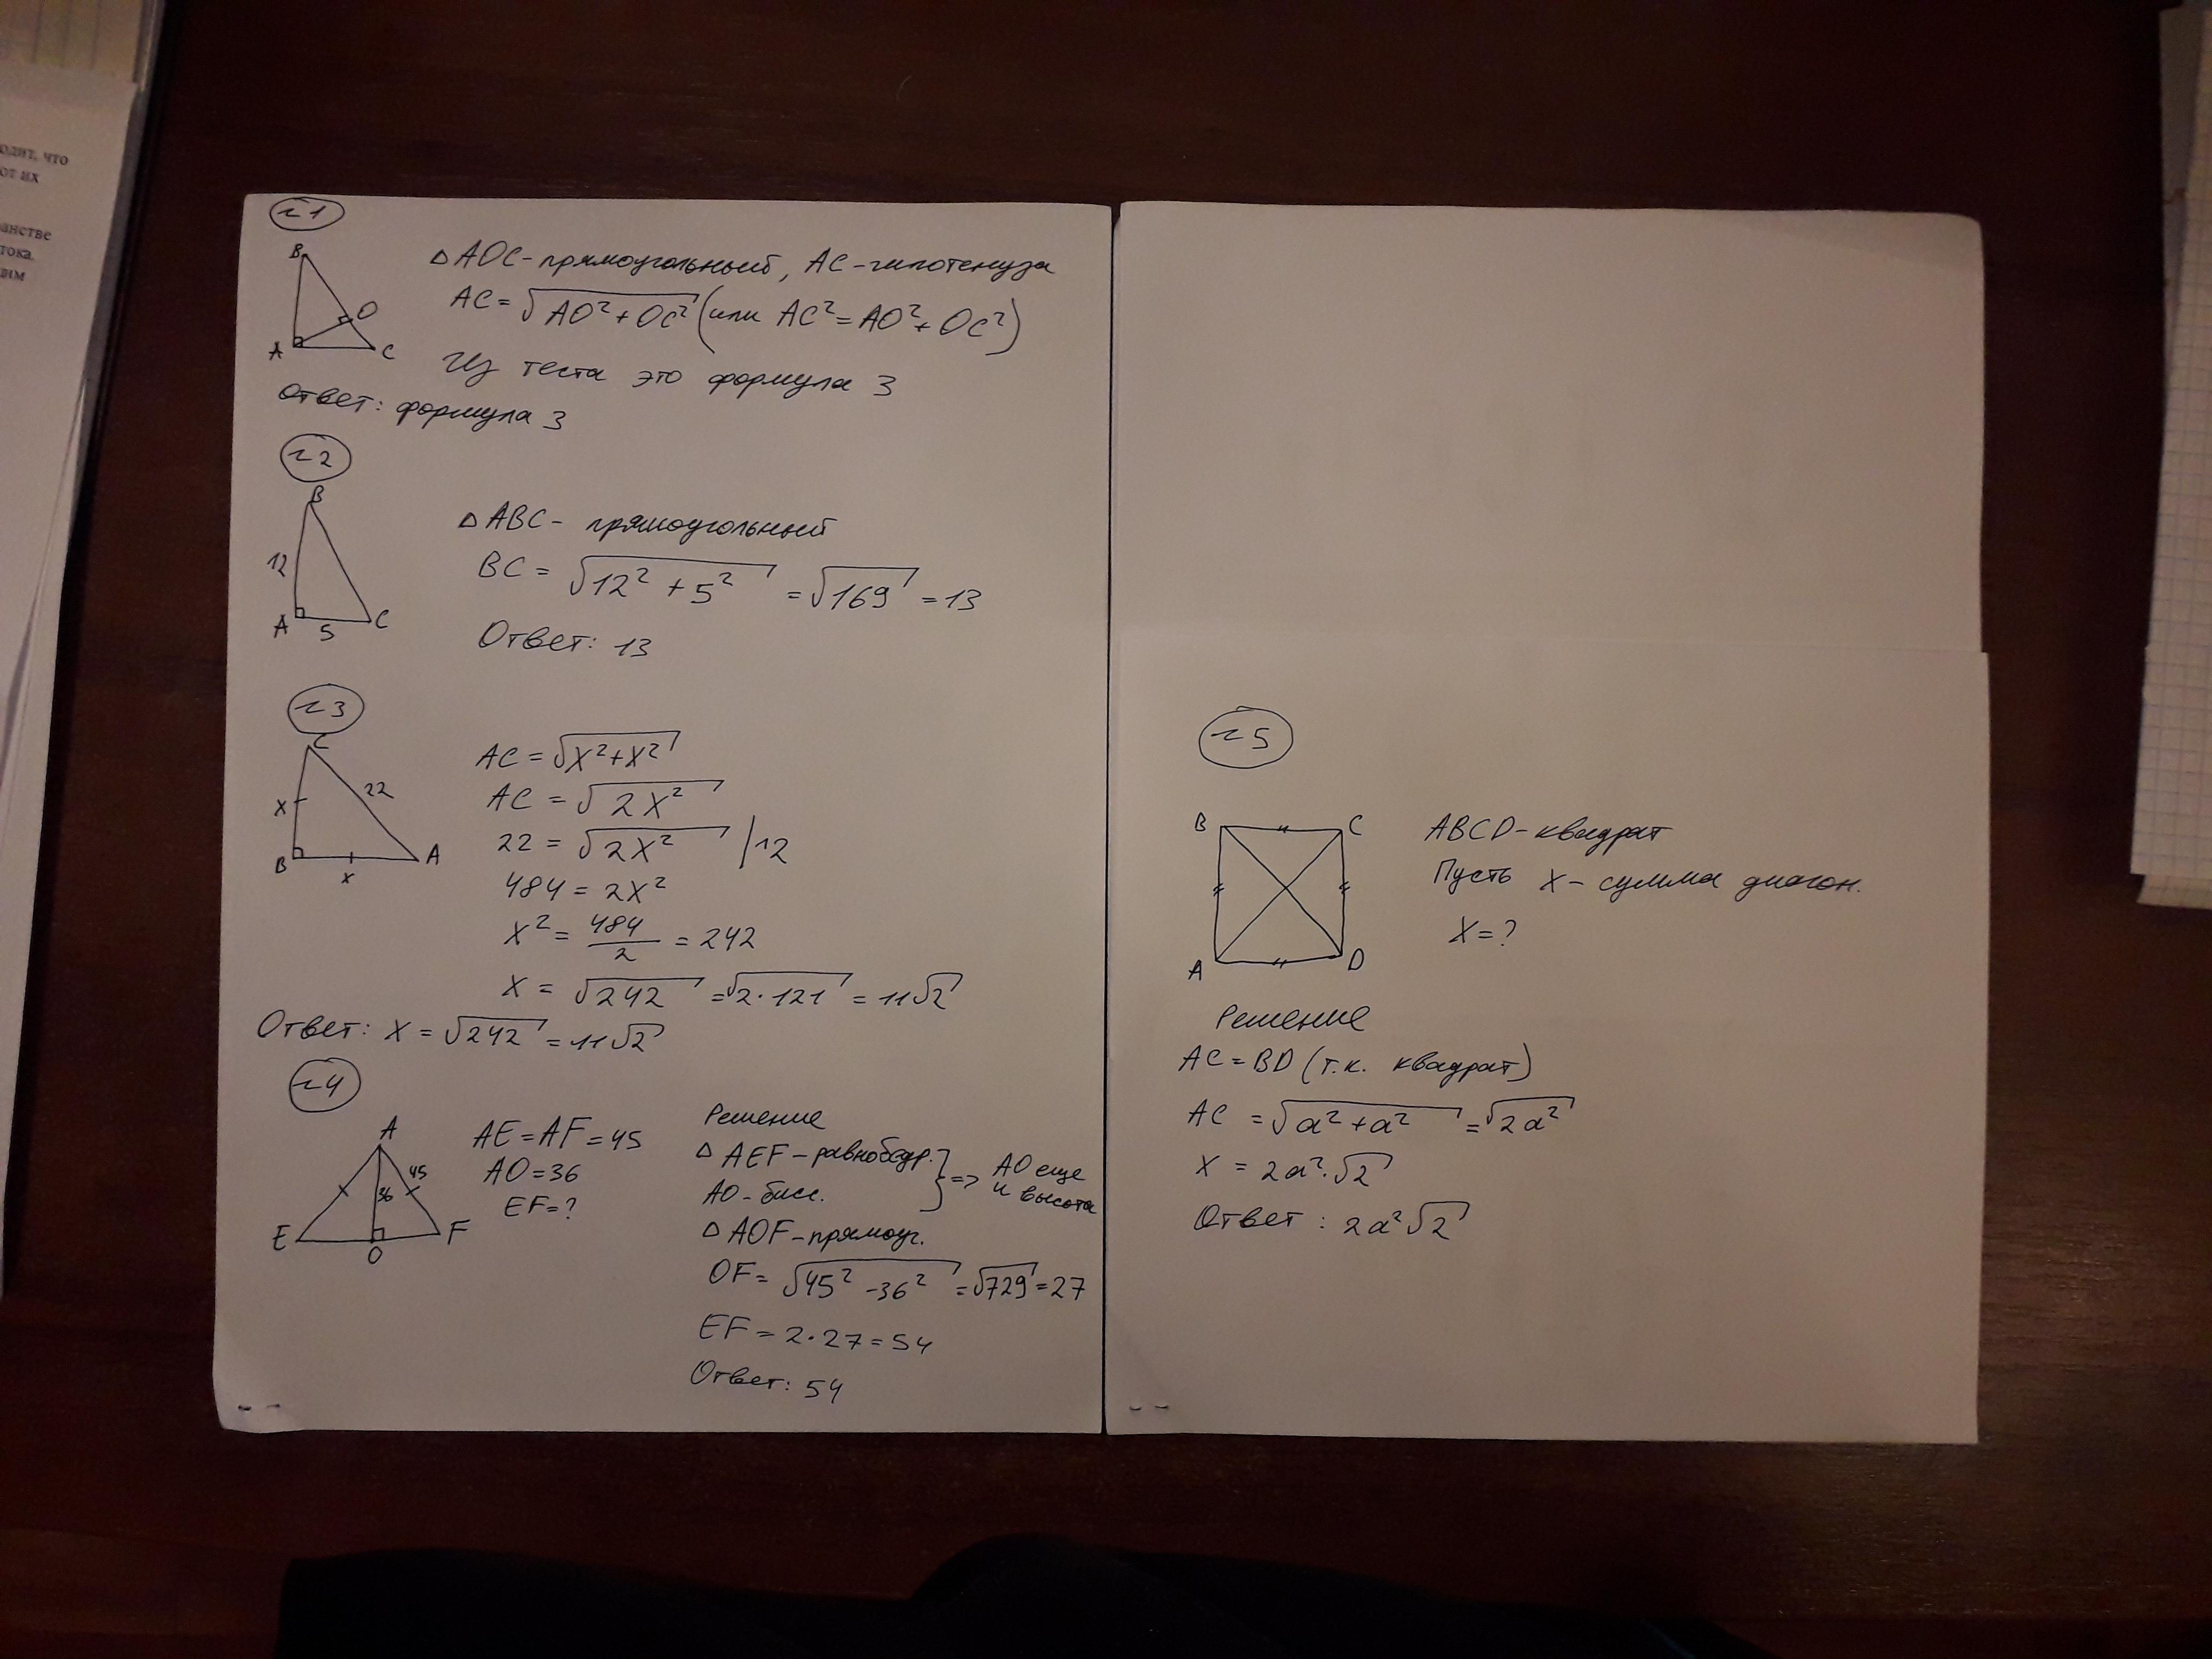 одит, что
от их
анстве
тока.
дим
г1
B
O
A
C
△ AOC - прямоугольный, AC - гипотенуза
AC = √AO² + OC² (или AC² = AO² + OC²)
Из теста это формула 3
Ответ: формула 3
г2
B
12
A
5
C
△ ABC - прямоугольный
BC = √12² + 5² = √169 = 13
Ответ: 13
г3
C
x
22
B
x
A
AC = √x² + x²
AC = √2x²
22 = √2x² |12
484 = 2x²
x² = 484/2 = 242
x = √242 = √2·121 = 11√2
Ответ: x = √242 = 11√2
г4
A
45
36
E
O
F
AE = AF = 45
AO = 36
EF = ?
Решение
△ AEF - равнобедр.
AO - бисс.
} => AO еще
и высота
△ AOF - прямоуг.
OF = √45² - 36² = √729 = 27
EF = 2·27 = 54
Ответ: 54
г5
B
C
A
D
ABCD - квадрат
Пусть x - сумма диагон.
x = ?
Решение
AC = BD (т.к. квадрат)
AC = √a² + a² = √2a²
x = 2a²·√2
Ответ: 2a²√2